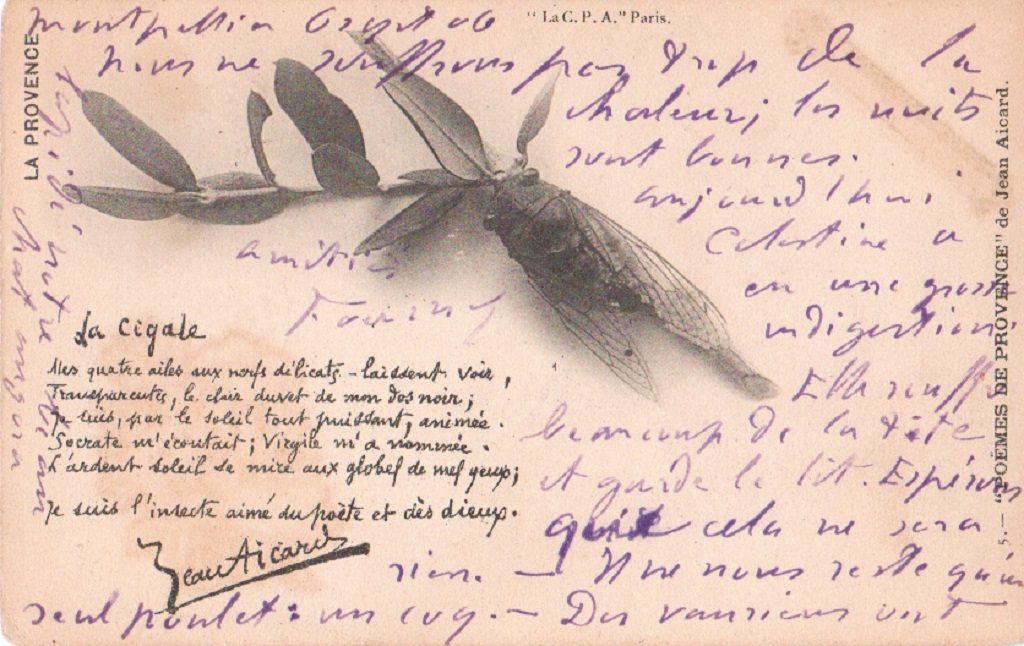 "La C.P.A." Paris.
LA PROVENCE
5. — "POÈMES DE PROVENCE" de Jean Aicard.
Montpellier 6 sept 06
Nous ne souffrons pas trop de la
chaleur; les nuits
sont bonnes.
aujourd'hui
Celestine a
eu une grosse
indigestion.
Elle souffre
beaucoup de la tête
et garde le lit. Espérons
que cela ne sera
rien. — Il ne nous reste qu'un
seul poulet: un coq. — Des vauriens ont
lapidé notre
chat angora
amitiés
La Cigale
Mes quatre ailes aux nerfs délicats - laissent voir,
Transparentes, le clair duvet de mon dos noir;
Je suis, par le soleil tout puissant, animée.
Socrate m'écoutait; Virgile m'a nommée.
L'ardent soleil se mire aux globes de mes yeux;
Je suis l'insecte aimé du poète et des dieux.
Jean Aicard